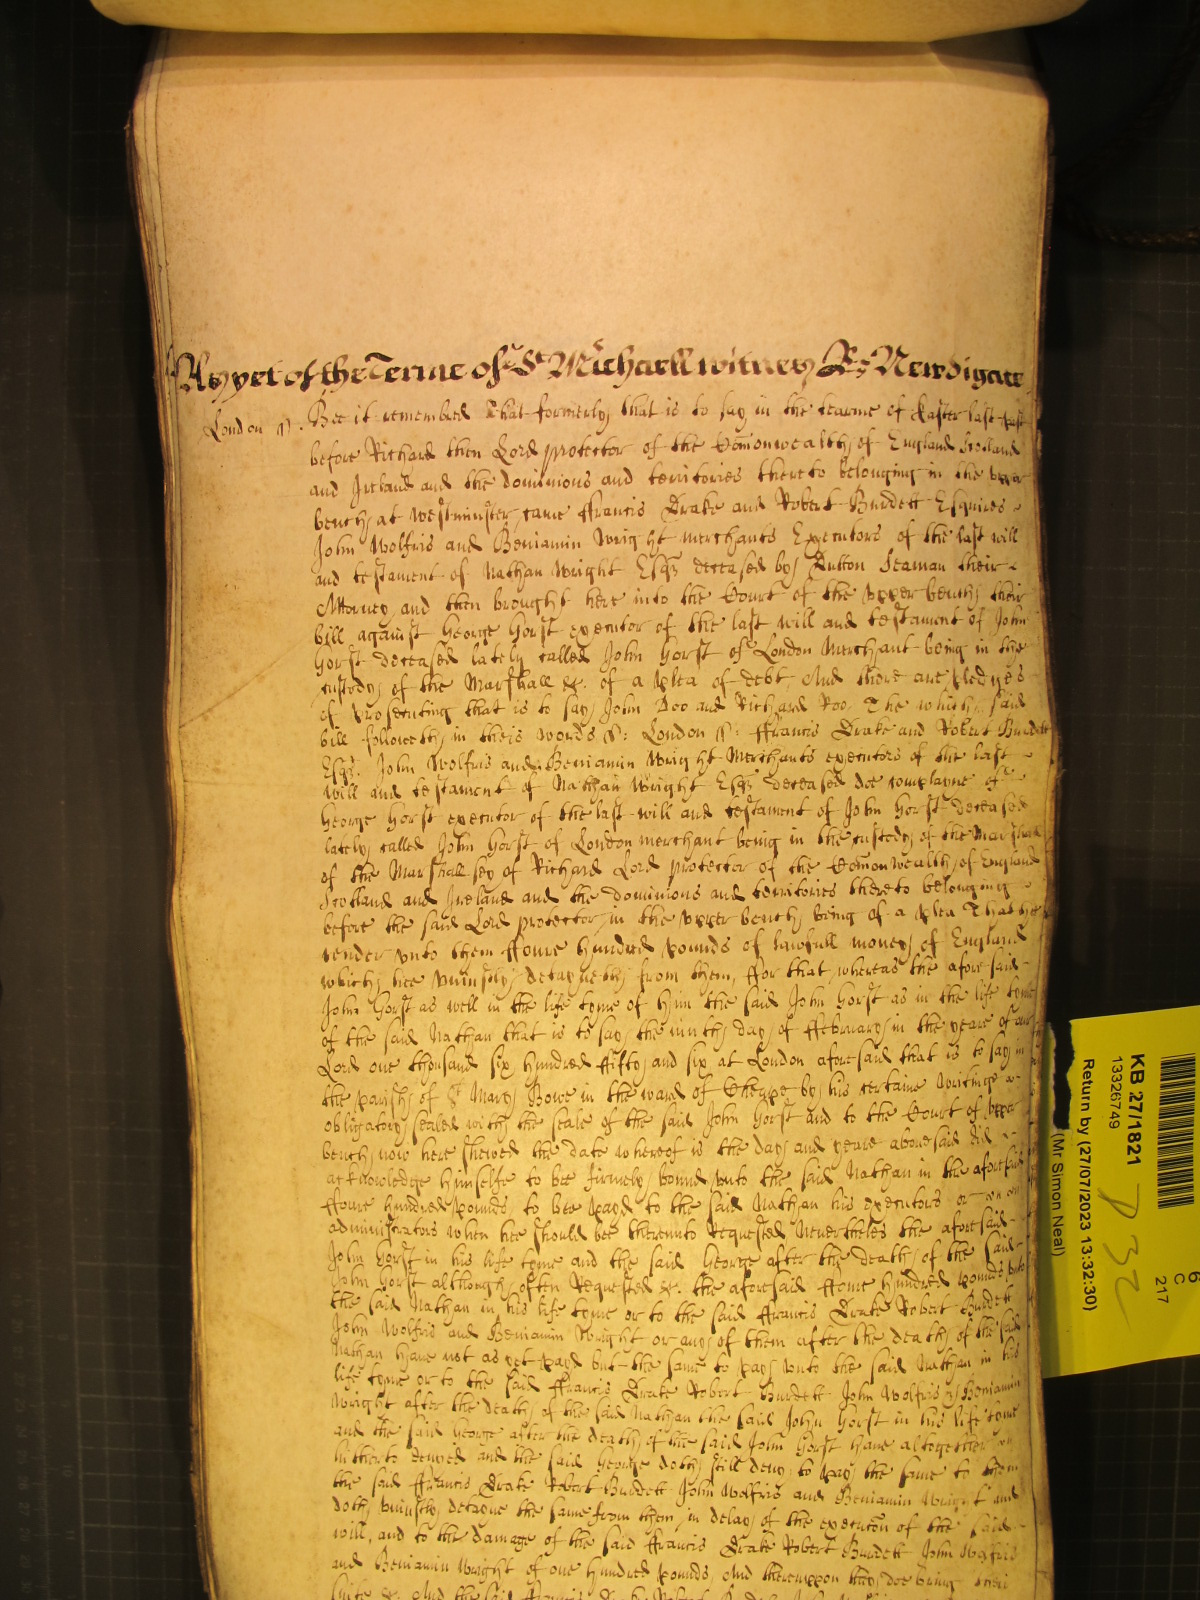 As yet of the Terme of St Michaell witnes R: Newdigate
London ss. Bee it remembred That formerly that is to say in the tearme of Easter last past
before Richard then Lord protector of the Com̄onwealth of England Scotland
and Ireland and the dominions and territories thereto belonging in the upper
bench at Westminster came ffrancis Drake and Robert Burdett Esquires
John Wolfris and Beniamin Wright merchants Executors of the last will
and testament of Nathan Wright Esqr deceased by Dutton Seaman their
Attorney and then brought here into the Court of the upper bench their
bill against George Horst executor of the last will and testament of John
Horst deceased lately called John Horst of London Merchant being in the
custody of the Marshall &c. of a plea of debt And there are pledges
of prosecuting that is to say John Doo and Richard Roo The which said
bill followeth in theis words ss: London ss: ffrancis Drake and Robert Burdett
Esqrs. John Wolfris and Beniamin Wright Merchants executors of the last
will and testament of Nathan Wright Esqr deceased doe complayne of
George Horst executor of the last will and testament of John Horst deceased
lately called John Horst of London merchant being in the custody of the Marshall
of the Marshallsey of Richard Lord protector of the Com̄onwealth of England
Scotland and Ireland and the dominions and territories thereto belonging
before the said Lord protector in the upper bench being of a plea That he
render unto them ffoure hundred pounds of lawfull money of England
which hee uniustly detayneth from them, ffor that whereas the aforesaid
John Horst as well in the life tyme of him the said John Horst as in the life tyme
of the said Nathan that is to say the ninth day of ffebruary in the yeare of our
Lord one thousand six hundred ffifty and six at London aforesaid that is to say in
the parish of St Mary Bowe in the ward of Cheape by his certaine writinge
obligatory sealed with the seale of the said John Horst and to the Court of upper
bench now here shewed the date whereof is the day and yeare abovesaid did
acknowledge himselfe to bee firmely bound unto the said Nathan in the aforesaid
ffoure hundred pounds to bee payd to the said Nathan his executors or
administrators when hee should bee thereunto requested Neverthelesse the aforesaid
John Horst in his life tyme and the said George after the death of the said
John Horst although often requested &c. the aforesaid ffoure hundred pounds unto
the said Nathan in his life tyme or to the said ffrancis Drake Robert Burdett
John Wolfris and Beniamin Wright or any of them after the death of the said
Nathan have not as yet payd but the same to pay unto the said Nathan in his
life tyme or to the said ffrancis Drake Robert Burdett John Wolfris & Beniamin
Wright after the death of the said Nathan the said John Horst in his life tyme
and the said George after the death of the said John Horst have altogether
hitherto denyed and the said George doth still deny to pay the same to them
the said ffrancis Drake Robert Burdett John Wolfris and Beniamin Wright and
doth uniustly detayne the same from them in delay of the execution of the said
will, and to the damage of the said ffrancis Drake Robert Burdett John Wolfris
and Beniamin Wright of one hundred pounds, And thereuppon they doe bring their
suite &c. And the said ffrancis Drake Robert Burdett John
KB 27/1821
13326749
Return by (27/07/2023 13:32:30)
(Mr Simon Neal)
6
C
217
P 32